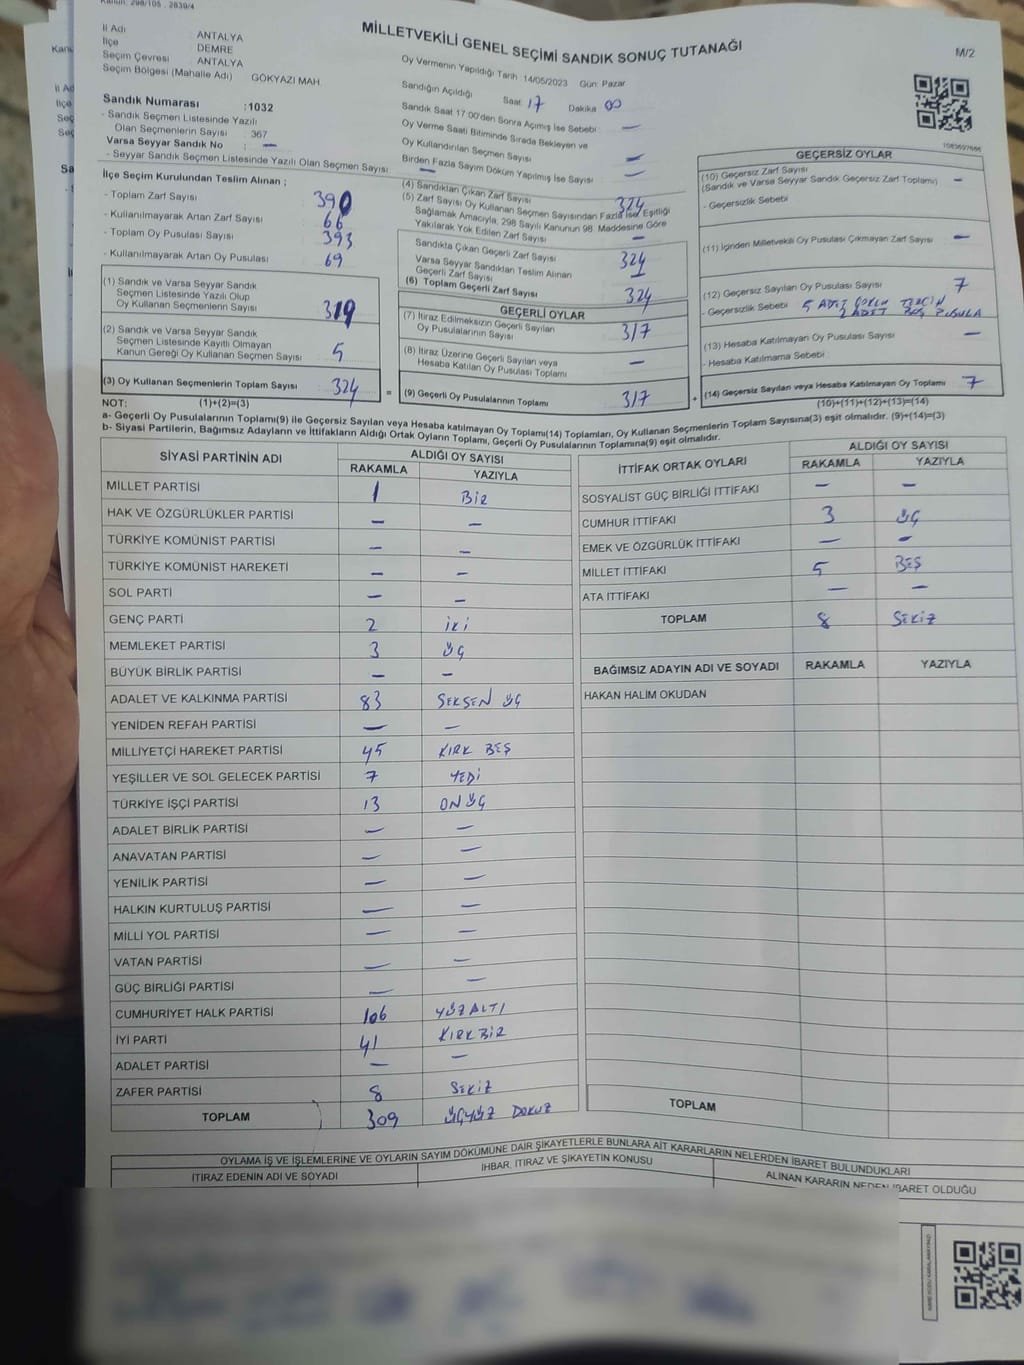 Kanun: 298/105 . 2839/4
MİLLETVEKİLİ GENEL SEÇİMİ SANDIK SONUÇ TUTANAĞI
M/2
İl Adı ANTALYA
İlçe DEMRE
Seçim Çevresi ANTALYA
Seçim Bölgesi (Mahalle Adı) GÖKYAZI MAH.
Sandık Numarası :1032
- Sandık Seçmen Listesinde Yazılı
Olan Seçmenlerin Sayısı : 367
Varsa Seyyar Sandık No —
- Seyyar Sandık Seçmen Listesinde Yazılı Olan Seçmen Sayısı —
Oy Vermenin Yapıldığı Tarih :14/05/2023 Gün: Pazar
Sandığın Açıldığı Saat 17 Dakika 00
Sandık Saat 17:00'den Sonra Açılmış İse Sebebi —
Oy Verme Saati Bitiminde Sırada Bekleyen ve
Oy Kullandırılan Seçmen Sayısı —
Birden Fazla Sayım Döküm Yapılmış İse Sayısı —
İlçe Seçim Kurulundan Teslim Alınan ;
- Toplam Zarf Sayısı 390
- Kullanılmayarak Artan Zarf Sayısı 66
- Toplam Oy Pusulası Sayısı 393
- Kullanılmayarak Artan Oy Pusulası 69
(1) Sandık ve Varsa Seyyar Sandık
Seçmen Listesinde Yazılı Olup
Oy Kullanan Seçmenlerin Sayısı 319
(2) Sandık ve Varsa Seyyar Sandık
Seçmen Listesinde Kayıtlı Olmayan
Kanun Gereği Oy Kullanan Seçmen Sayısı 5
(3) Oy Kullanan Seçmenlerin Toplam Sayısı 324 =
(4) Sandıktan Çıkan Zarf Sayısı 324
(5) Zarf Sayısı Oy Kullanan Seçmen Sayısından Fazla İse, Eşitliği
Sağlamak Amacıyla, 298 Sayılı Kanunun 98. Maddesine Göre
Yakılarak Yok Edilen Zarf Sayısı —
Sandıkta Çıkan Geçerli Zarf Sayısı 324
Varsa Seyyar Sandıktan Teslim Alınan
Geçerli Zarf Sayısı —
(6) Toplam Geçerli Zarf Sayısı 324
GEÇERLİ OYLAR
(7) İtiraz Edilmeksizin Geçerli Sayılan
Oy Pusulalarının Sayısı 317
(8) İtiraz Üzerine Geçerli Sayılan veya
Hesaba Katılan Oy Pusulası Toplamı —
(9) Geçerli Oy Pusulalarının Toplamı 317 +
1083697666
GEÇERSİZ OYLAR
(10) Geçersiz Zarf Sayısı
(Sandık ve Varsa Seyyar Sandık Geçersiz Zarf Toplamı) —
- Geçersizlik Sebebi
(11) İçinden Milletvekili Oy Pusulası Çıkmayan Zarf Sayısı —
(12) Geçersiz Sayılan Oy Pusulası Sayısı 7
- Geçersizlik Sebebi 5 ADET ÇOKLU TERCİH
2 ADET BOŞ PUSULA
(13) Hesaba Katılmayan Oy Pusulası Sayısı —
- Hesaba Katılmama Sebebi
(14) Geçersiz Sayılan veya Hesaba Katılmayan Oy Toplamı 7
NOT: (1)+(2)=(3) (10)+(11)+(12)+(13)=(14)
a- Geçerli Oy Pusulalarının Toplamı(9) ile Geçersiz Sayılan veya Hesaba katılmayan Oy Toplamı(14) Toplamları, Oy Kullanan Seçmenlerin Toplam Sayısına(3) eşit olmalıdır. (9)+(14)=(3)
b- Siyasi Partilerin, Bağımsız Adayların ve İttifakların Aldığı Ortak Oyların Toplamı, Geçerli Oy Pusulalarının Toplamına(9) eşit olmalıdır.
SİYASİ PARTİNİN ADI ALDIĞI OY SAYISI
RAKAMLA YAZIYLA
MİLLET PARTİSİ 1 BİR
HAK VE ÖZGÜRLÜKLER PARTİSİ — —
TÜRKİYE KOMÜNİST PARTİSİ — —
TÜRKİYE KOMÜNİST HAREKETİ — —
SOL PARTİ — —
GENÇ PARTİ 2 İKİ
MEMLEKET PARTİSİ 3 ÜÇ
BÜYÜK BİRLİK PARTİSİ — —
ADALET VE KALKINMA PARTİSİ 83 SEKSEN ÜÇ
YENİDEN REFAH PARTİSİ — —
MİLLİYETÇİ HAREKET PARTİSİ 45 KIRK BEŞ
YEŞİLLER VE SOL GELECEK PARTİSİ 7 YEDİ
TÜRKİYE İŞÇİ PARTİSİ 13 ON ÜÇ
ADALET BİRLİK PARTİSİ — —
ANAVATAN PARTİSİ — —
YENİLİK PARTİSİ — —
HALKIN KURTULUŞ PARTİSİ — —
MİLLİ YOL PARTİSİ — —
VATAN PARTİSİ — —
GÜÇ BİRLİĞİ PARTİSİ — —
CUMHURİYET HALK PARTİSİ 106 YÜZ ALTI
İYİ PARTİ 41 KIRK BİR
ADALET PARTİSİ — —
ZAFER PARTİSİ 8 SEKİZ
TOPLAM 309 ÜÇYÜZ DOKUZ
İTTİFAK ORTAK OYLARI ALDIĞI OY SAYISI
RAKAMLA YAZIYLA
SOSYALİST GÜÇ BİRLİĞİ İTTİFAKI — —
CUMHUR İTTİFAKI 3 ÜÇ
EMEK VE ÖZGÜRLÜK İTTİFAKI — —
MİLLET İTTİFAKI 5 BEŞ
ATA İTTİFAKI — —
TOPLAM 8 SEKİZ
BAĞIMSIZ ADAYIN ADI VE SOYADI RAKAMLA YAZIYLA
HAKAN HALİM OKUDAN
TOPLAM
OYLAMA İŞ VE İŞLEMLERİNE VE OYLARIN SAYIM DÖKÜMÜNE DAİR ŞİKAYETLERLE BUNLARA AİT KARARLARIN NELERDEN İBARET BULUNDUKLARI
İTİRAZ EDENİN ADI VE SOYADI İHBAR, İTİRAZ VE ŞİKAYETİN KONUSU ALINAN KARARIN NEDEN İBARET OLDUĞU